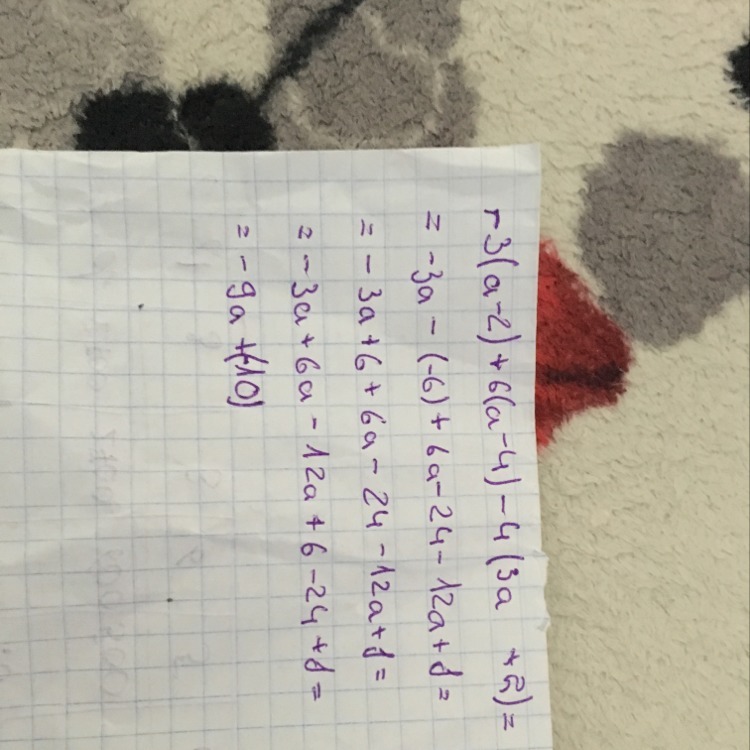 -3(a-2)+6(a-4)-4(3a +2)=
= -3a - (-6) + 6a - 24 - 12a + 8 =
= -3a + 6 + 6a - 24 - 12a + 8 =
= -3a + 6a - 12a + 6 - 24 + 8 =
= -9a + (-10)